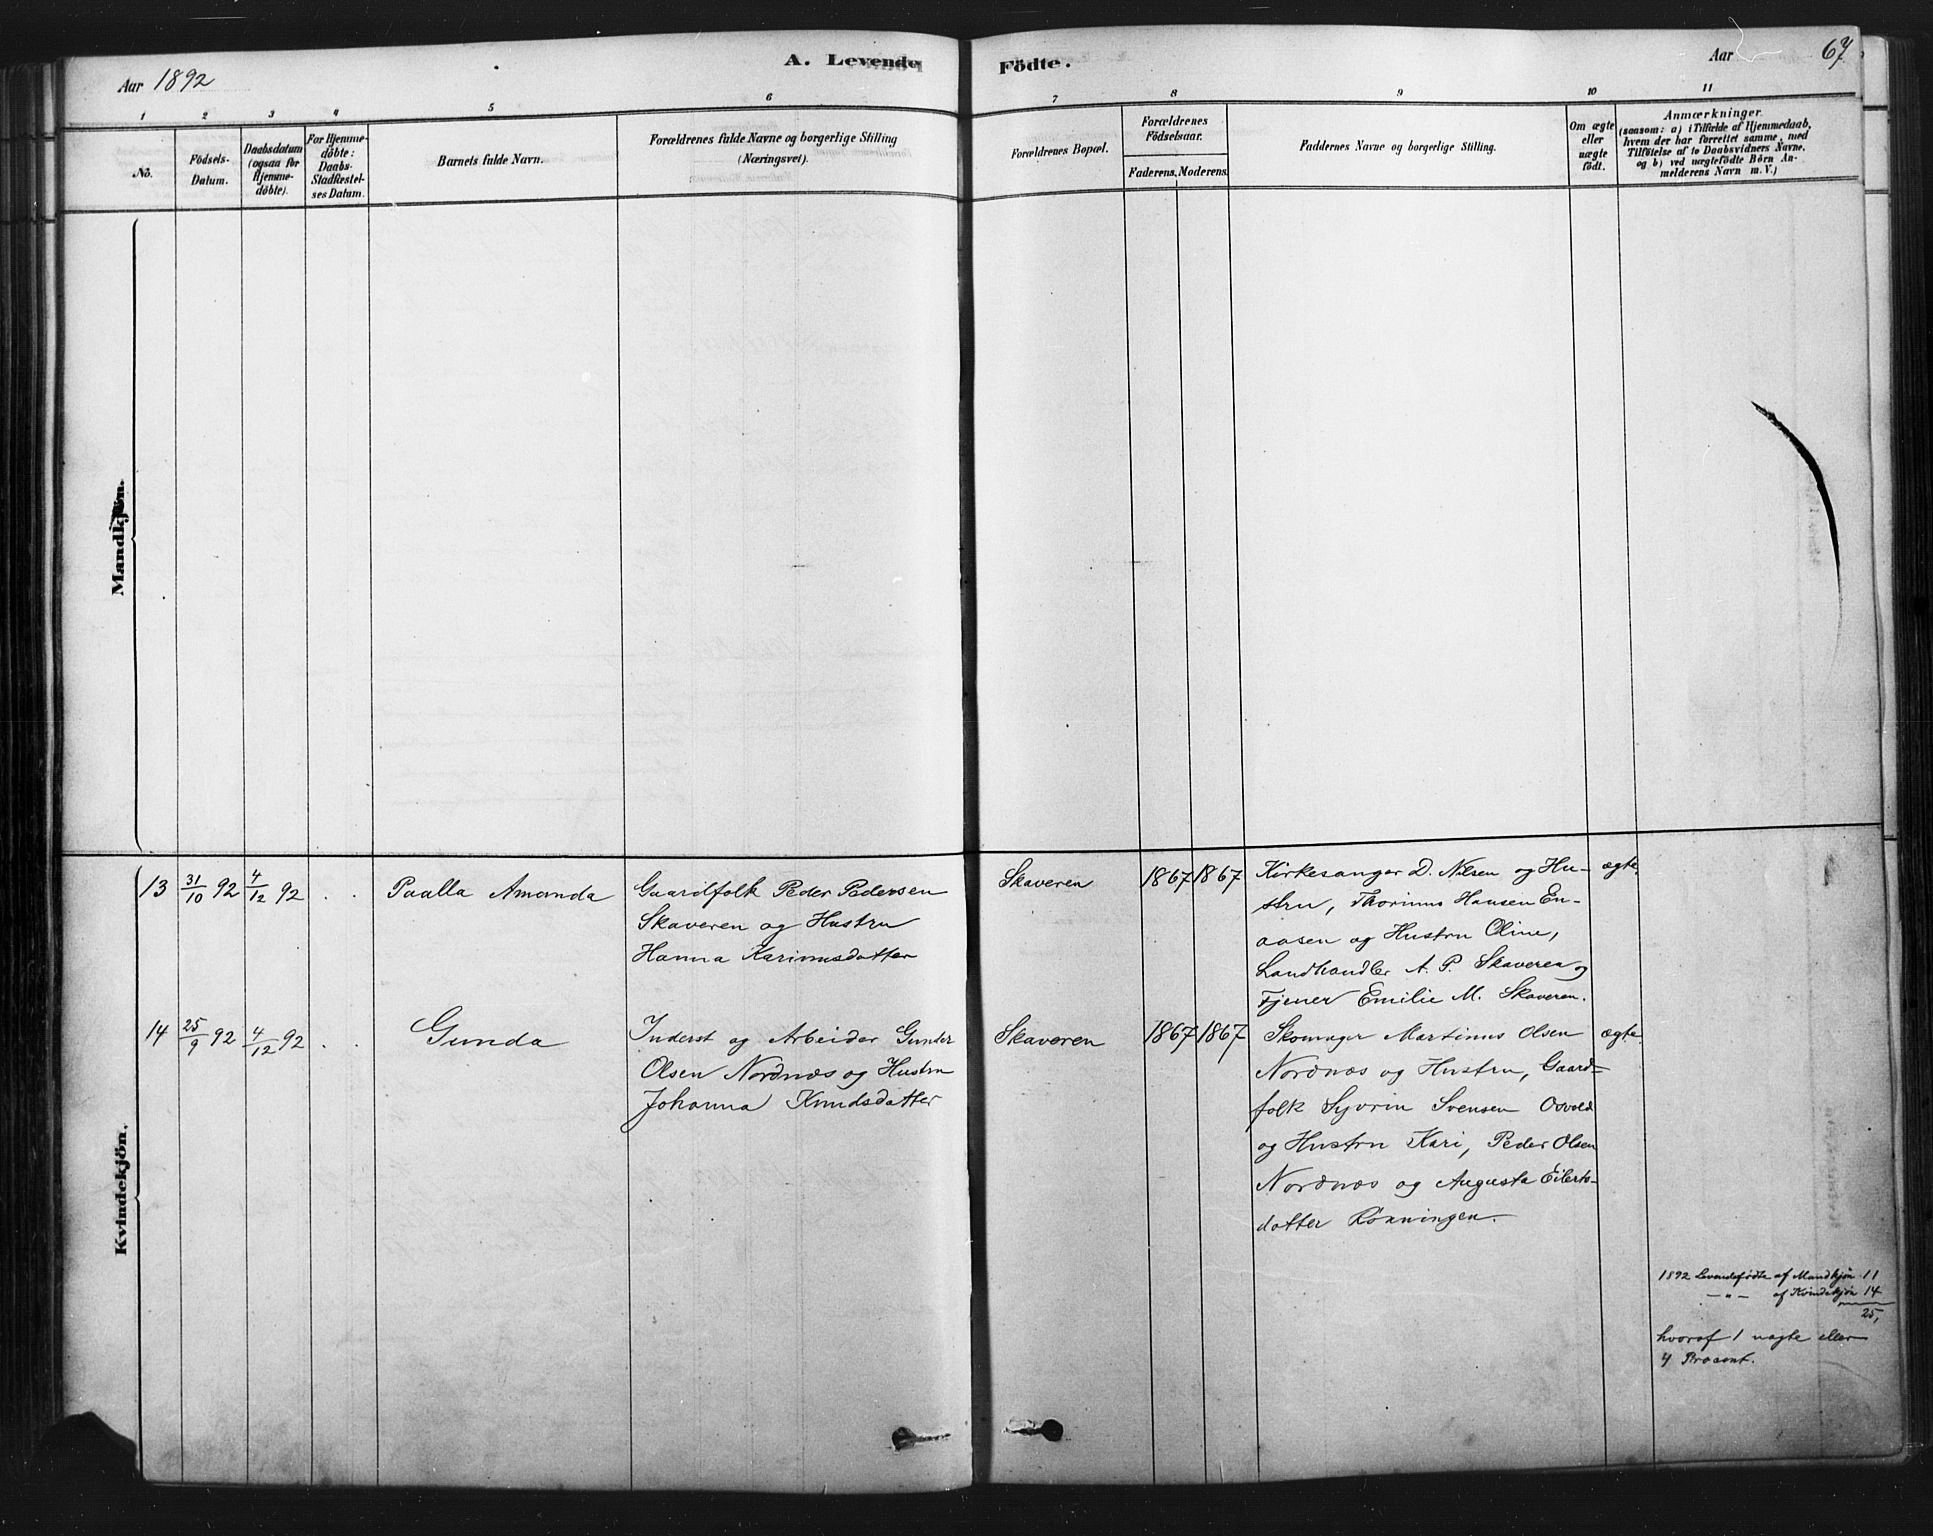 Aar 1892
A. Levende Födte.
Aar
67
1 2 3 4 5 6 7 8 9 10 11
No.
Födsels-
Datum.
Daabsdatum
(ogsaa for
Hjemme-
döbte).
For Hjemme-
döbte:
Daabs
Stadfæstel-
ses Datum.
Barnets fulde Navn.
Forældrenes fulde Navne og borgerlige Stilling
(Næringsvei).
Forældrenes Bopæl.
Forældrenes
Födselsaar.
Faderens. Moderens.
Faddernes Navne og borgerlige Stilling.
Om ægte
eller
uægte
födt.
Anmærkninger
(saasom: a) i Tilfælde af Hjemmedaab,
hvem der har forrettet samme, med
Tilföielse af to Daabsvidners Navne,
og b) ved uægtefödte Börn An-
melderens Navn m. V.)
Mandkjön.
Kvindekjön.
13 31/10 92 4/12 92 . .
Paalla Amanda
Gaardfolk Peder Pedersen
Skaveren og Hustru
Hanna Karinusdatter
Skaveren
1867 1867
Kirkesanger D. Nilsen og Hu-
stru, Thorinus Hansen En-
aasen og Hustru Oline,
Landhandler A. P. Skaveren og
Tjener Emilie M. Skaveren.
ægte
14 25/9 92 4/12 92 . .
Gunda
Inderst og Arbeider Gunder
Olsen Nordnæs og Hustru
Johanna Knudsdatter
Skaveren
1867 1867
Skomager Martinus Olsen
Nordnæs og Hustru, Gaard-
folk Syvrin Svensen Osvold
og Hustru Kari, Peder Olsen
Nordnæs og Augusta Eilerts-
datter Rönningen.
ægte
1892 Levendefödte af Mandkjön 11
— " — af Kvindekjön 14
25,
hvoraf 1 uægte eller
4 Procent.